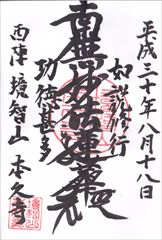 平成三十年八月十八日
如説修行
南無妙法蓮華経
功徳甚多
西陣 瑞智山 本久寺